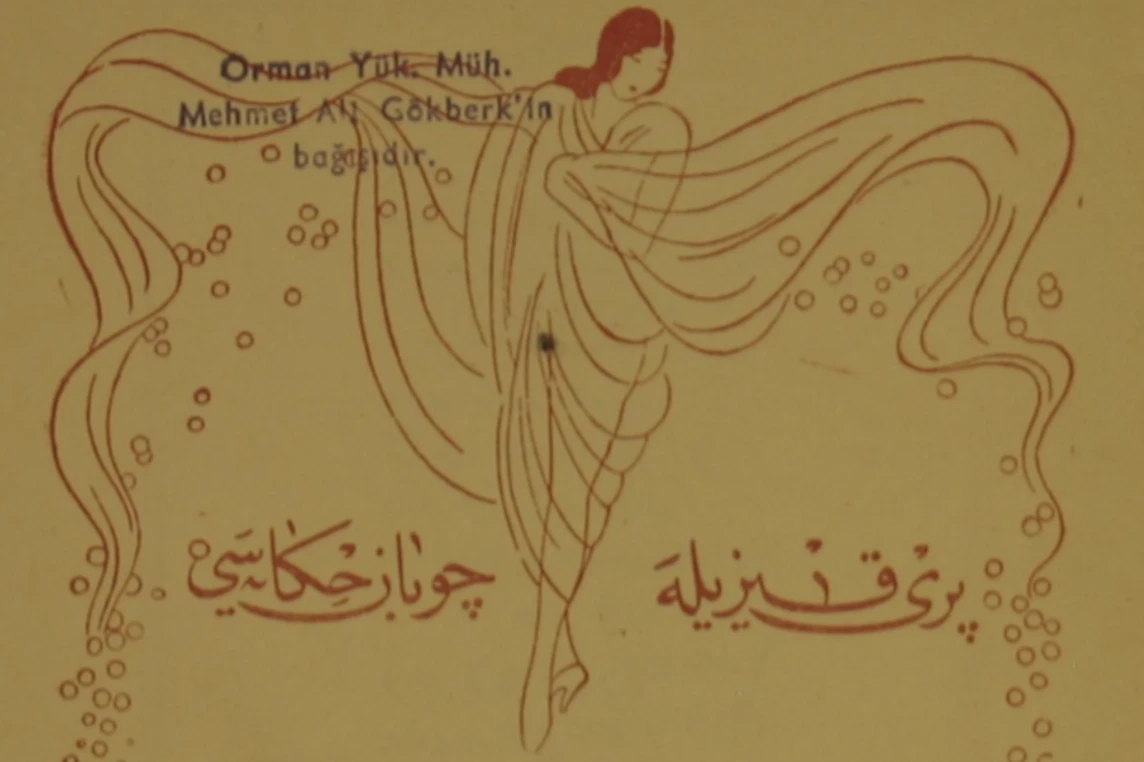 Orman Yük. Müh.
Mehmet Ali Gökberk'in
bağışıdır.
پرى قیزیله چوبان حكایەسی